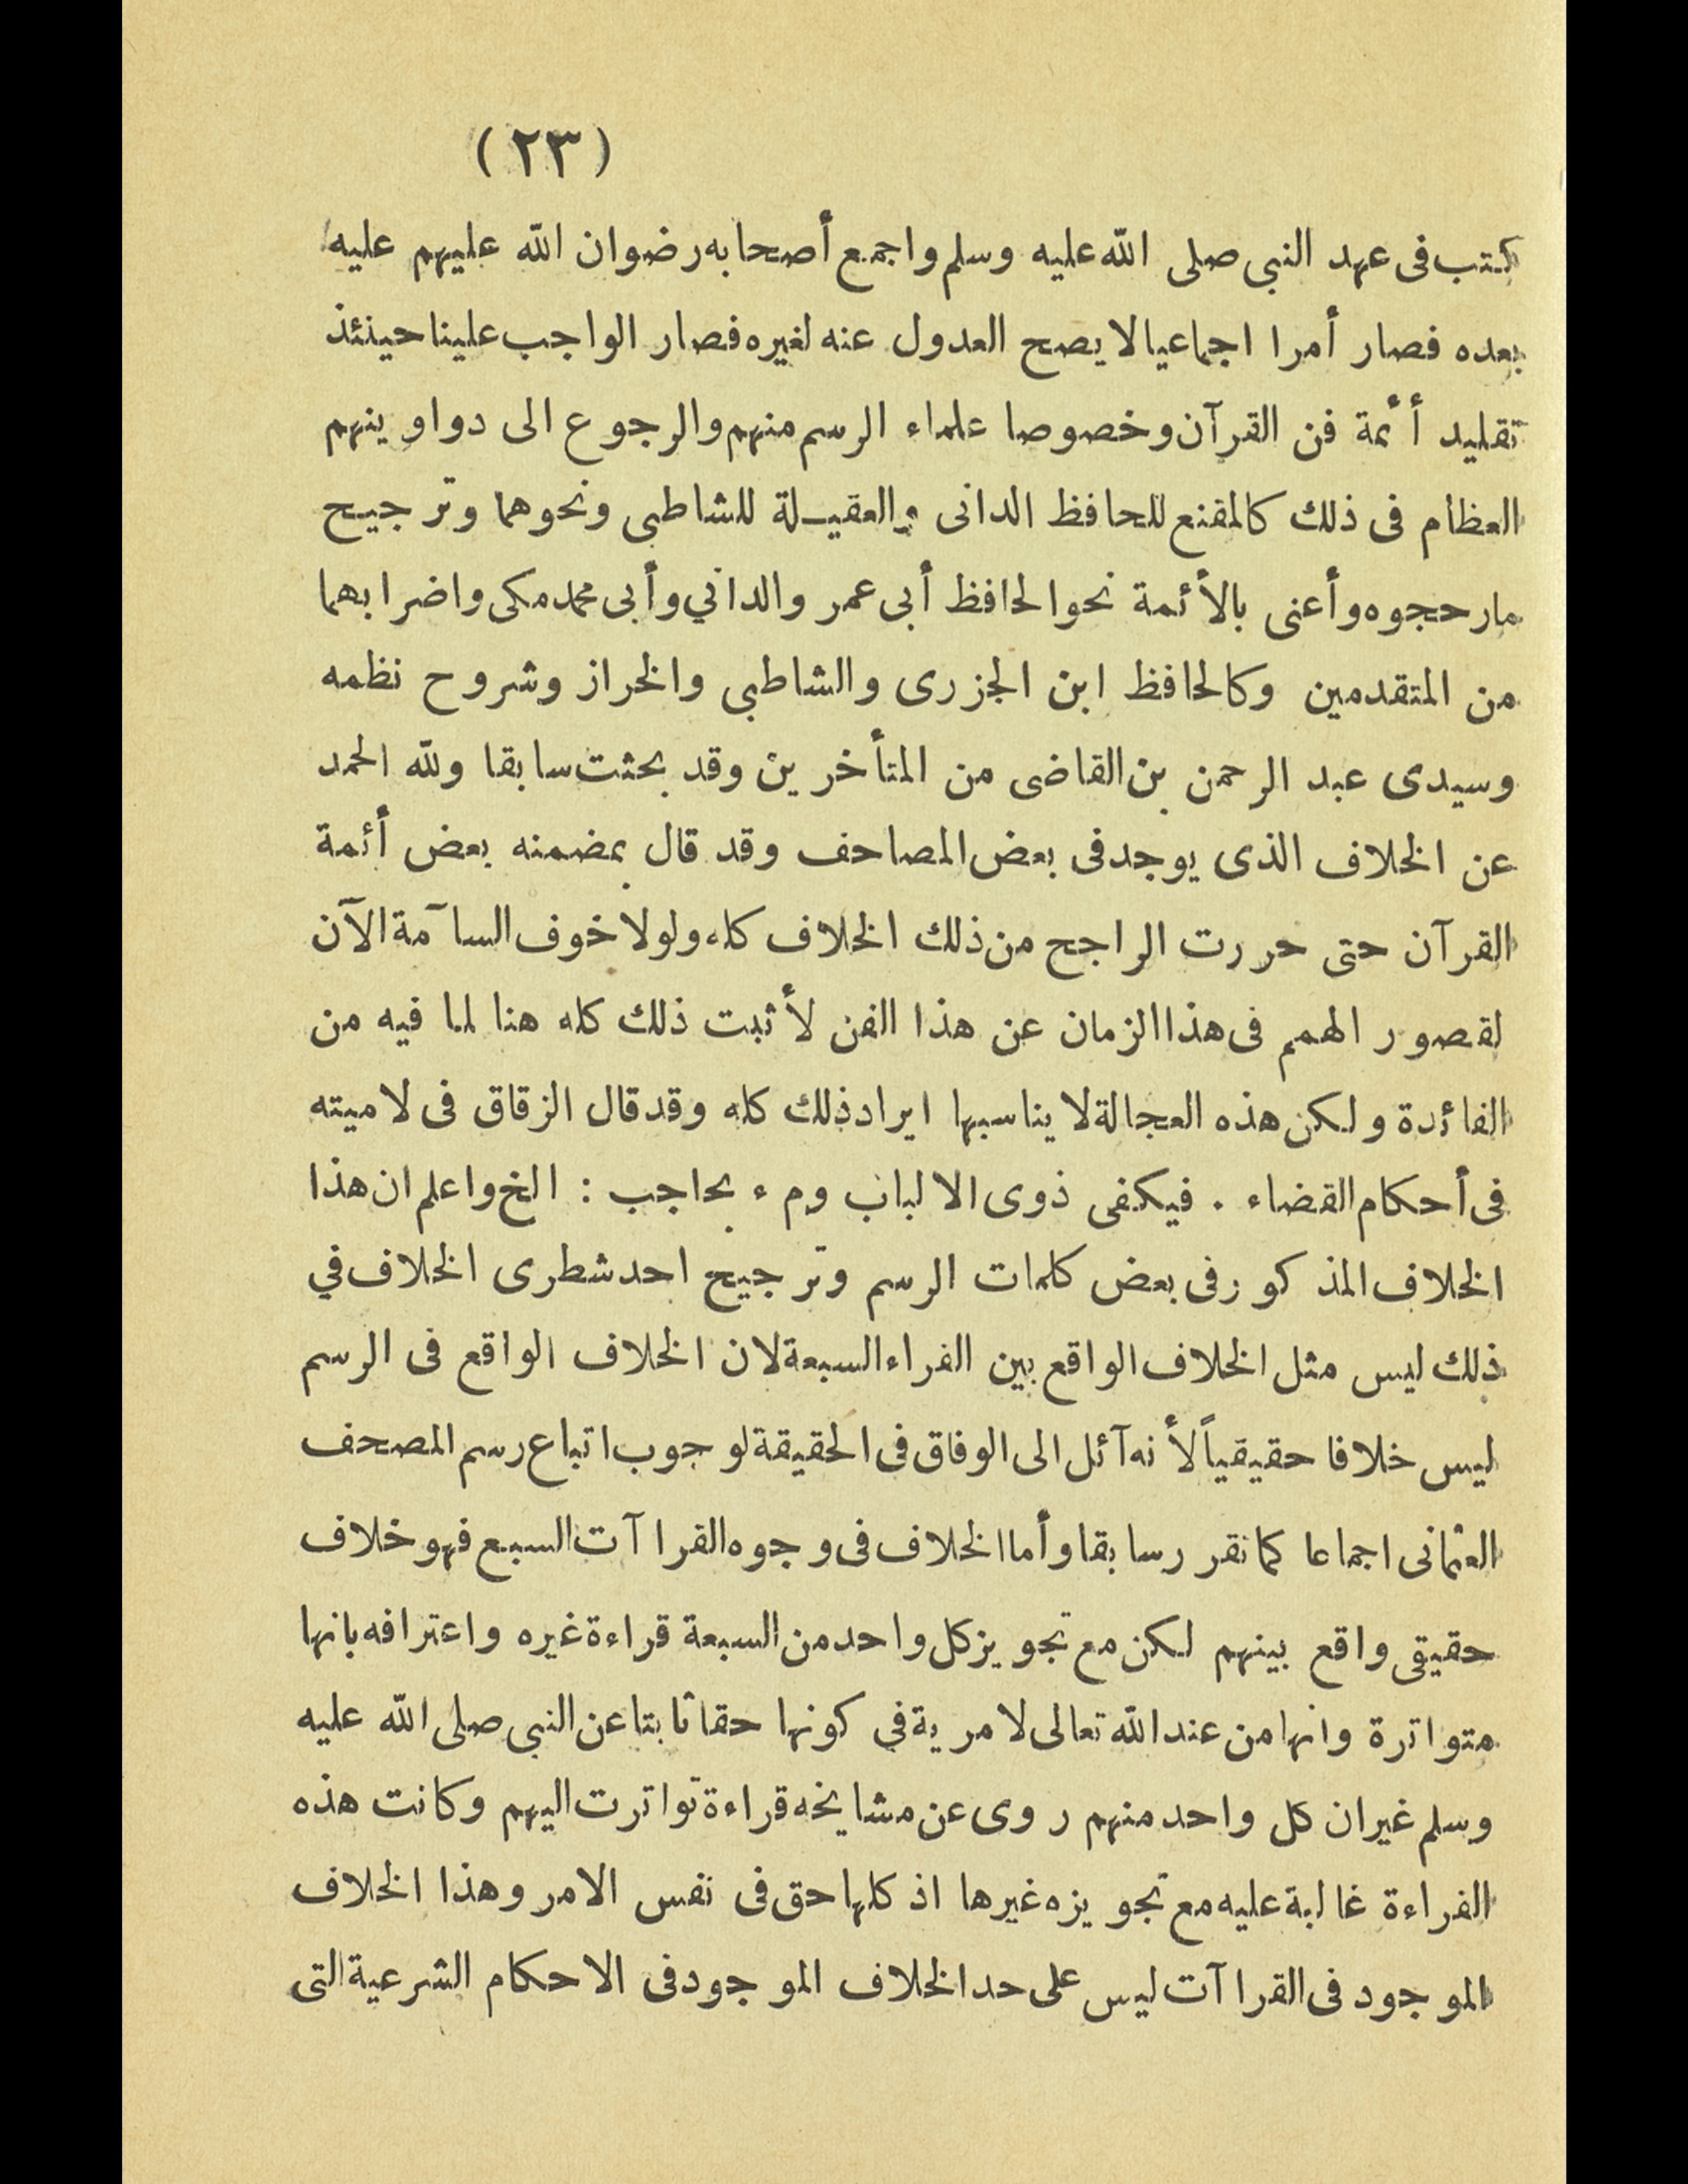 (٢٣)
كتب فى عهد النبي صلى الله عليه وسلم واجمع أصحابه رضوان الله عليهم عليه
بعده فصار أمرا اجماعيا لا يصح العدول عنه لغيره فصار الواجب علينا حينئذ
تقليد أئمة فن القرآن وخصوصا علماء الرسم منهم والرجوع الى دواوينهم
العظام فى ذلك كالمقنع للحافظ الدانى والعقيـلة للشاطبى ونحوهما وترجيح
مارحجوه وأعنى بالأئمة نحوالحافظ أبى عمر والداني وأبى محمد مكى واضرابهما
من المتقدمين وكالحافظ ابن الجزرى والشاطبي والخراز وشروح نظمه
وسيدى عبد الرحمن بن القاضى من المتأخرين وقد بحثت سابقا ولله الحمد
عن الخلاف الذى يوجد فى بعض المصاحف وقد قال بمضمنه بعض أئمة
القرآن حتى حررت الراجح من ذلك الخلاف كله ولولا خوف السآمة الآن
لقصور الهمم فى هذا الزمان عن هذا الفن لأثبت ذلك كله هنا لما فيه من
الفائدة ولكن هذه العجالة لا يناسبها ايراد ذلك كله وقد قال الزقاق فى لاميته
فى أحكام القضاء . فيكفى ذوى الالباب ومء بحاجب : الخ واعلم ان هذا
الخلاف المذكور فى بعض كلمات الرسم وترجيح احد شطرى الخلاف في
ذلك ليس مثل الخلاف الواقع بين الفراء السبعة لان الخلاف الواقع فى الرسم
ليس خلافا حقيقياً لأنه آئل الى الوفاق فى الحقيقة لوجوب اتباع رسم المصحف
العثمانى اجماعا كما نقرر سابقا وأما الخلاف فى وجوه القراآت السبع فهو خلاف
حقيقى واقع بينهم لكن مع تجويز كل واحد من السبعة قراءة غيره واعترافه بانها
متواترة وانها من عند الله تعالى لا مرية في كونها حقا ثابتا عن النبي صلى الله عليه
وسلم غير ان كل واحد منهم روى عن مشايخه قراءة تواترت اليهم وكانت هذه
الفراءة غالبة عليه مع تجويزه غيرها اذ كلها حق فى نفس الامر وهذا الخلاف
الموجود فى القراآت ليس على حد الخلاف الموجود فى الاحكام الشرعية التى